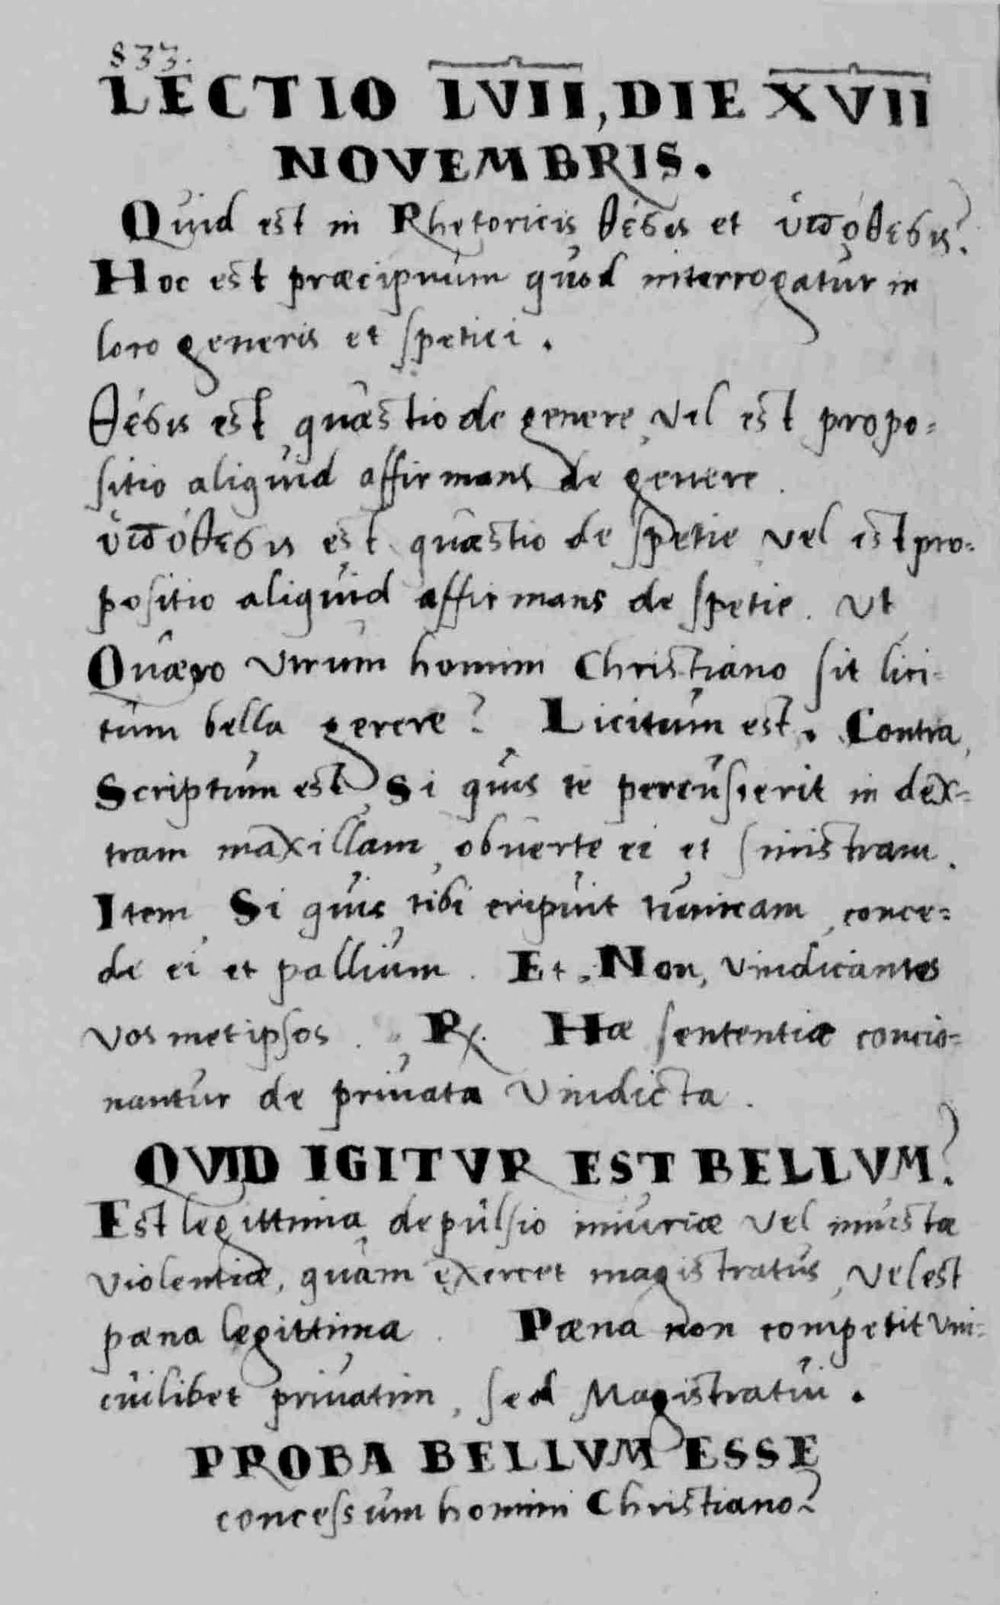 833.
LECTIO LVII, DIE XVII
NOVEMBRIS.
Quid est in Rhetoricis θέσις et ὑπόθεσις?
Hoc est præcipuum quod interrogatur in
loco generis et spetiei.
θέσις est quæstio de genere, vel est propo=
sitio aliquid affirmans de genere.
ὑπόθεσις est quæstio de spetie vel est pro=
positio aliquid affirmans de spetie. Ut
Quæro utrum homini Christiano sit lici=
tum bella gerere? Licitum est. Contra,
Scriptum est, Si quis te percusserit in dex=
tram maxillam, obuerte ei et sinistram.
Item, Si quis tibi eripuit tunicam, conce=
de ei et pallium. Et, Non vindicantes
vos metipsos. R. Hæ sententiæ concio=
nantur de priuata vindicta.
QVID IGITVR EST BELLVM?
Est legittima depulsio iniuriæ vel iniustæ
violentiæ, quam exercet magistratus, vel est
pæna legittima. Pæna non competit uni=
cuilibet priuatim, sed Magistratui.
PROBA BELLVM ESSE
concessum homini Christiano?